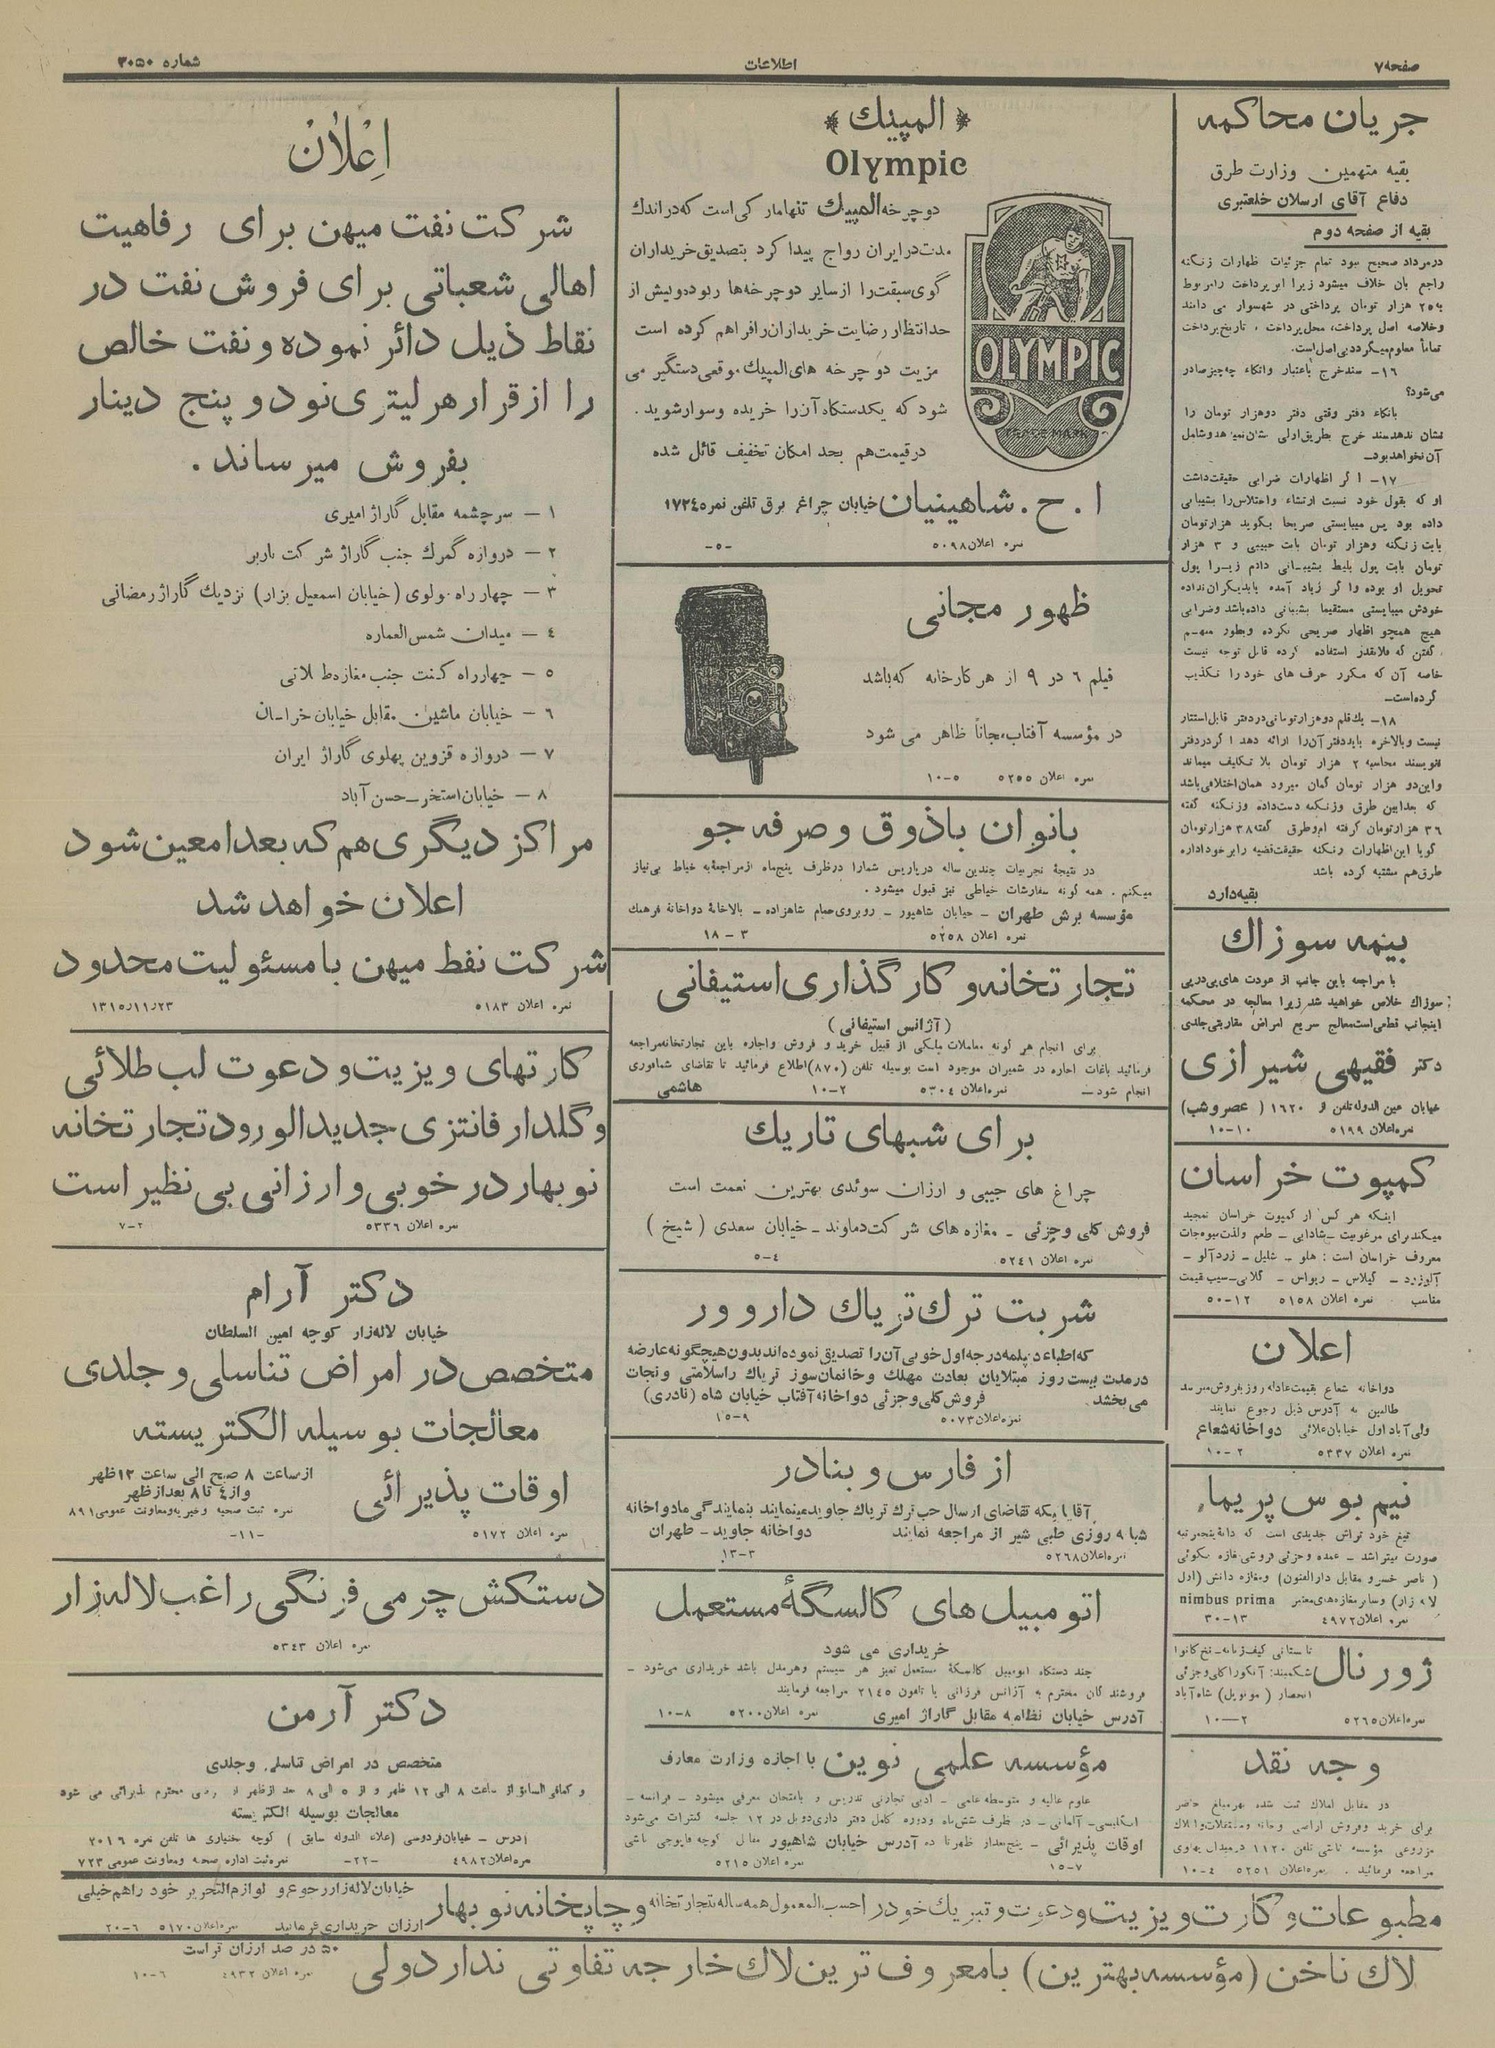 صفحه ۷
اطلاعات
شماره ۳۰۵۰
جریان محاکمه
بقیه متهمین وزارت طرق
دفاع آقای ارسلان خلعتبری
بقیه از صفحه دوم
درمرداد صحیح نبود تمام جزئیات اظهارات زنگنه
راجع بان خلاف میشود زیرا این پرداخت را مربوط
به ۲۵ هزار تومان پرداختی در شهسوار می دانند
وخلاصه اصل پرداخت، محل پرداخت، تاریخ پرداخت
تماماً معلوم میگردد بی اصل است.
۱۶- سندخرج باعتبار واتکاء چه چیز صادر
می‌شود؟
باتکاء دفتر وقتی دفتر دوهزار تومان را
نشان ندهد سند خرج بطریق اولی نشان نمیدهد و شامل
آن نخواهد بود-
۱۷- اگر اظهارات ضرابی حقیقت داشت
او که بقول خود نسبت ارتشاء واختلاس را بشیبانی
داده بود پس میبایستی صریحا بگوید هزار تومان
بابت زنگنه وهزار تومان بابت حبیبی و ۳ هزار
تومان بابت پول بلیط بشیبانی دادم زیرا پول
تحویل او بوده واگر زیاد آمده بایدیگران نداده
خودش میبایستی مستقیما بشیبانی داده باشد وضرابی
هیچ همچو اظهار صریحی نکرده وبطور مبهم
گفتن که فلانقدر استفاده کرده قابل توجه نیست
خاصه آن که مکرر حرف های خود را تکذیب
کرده است-
۱۸- یك قلم دوهزار تومانی در دفتر قابل استتار
نیست وبالاخره باید دفتر آن را ارائه دهد اگر در دفتر
ننویسند محاسبه ۲ هزار تومان بلا تکلیف میماند
واین دو هزار تومان گمان میرود همان اختلافی باشد
که بعدا بین طرق وزنگنه دست داده وزنگنه گفته
۳۶ هزار تومان گرفته ام وطرق گفته ۳۸ هزار تومان
گویا این اظهارات زنگنه حقیقت قضیه را بر خود اداره
طرق هم مشتبه کرده باشد
بقیه دارد
بیمه سوزاك
با مراجعه باین جانب از عودت های پی در پی
سوزاك خلاص خواهید شد زیرا معالجه در محکمه
اینجانب قطعی است معالج سریع امراض مقاربتی جلدی
دکتر فقیهی شیرازی
خیابان عین الدوله تلفن و ۱۶۲۰ (عصر و شب)
نمره اعلان ۵۱۹۹ ۱۰-۱۰
کمپوت خراسان
اینکه هر کس از کمپوت خراسان تمجید
میکند برای مرغوبیت - شادابی - طعم ولذت میوه جات
معروف خراسان است: هلو - شلیل - زردآلو -
آلوزرد - گیلاس - ریواس - گلابی - سیب قیمت
مناسب نمره اعلان ۵۱۵۸ ۱۲-۵۰
اعلان
دواخانه شعاع بقیمت عادله روز بفروش میرسد
طالبین به آدرس ذیل رجوع نمایند
ولی آباد اول خیابان علائی دواخانه شعاع
نمره اعلان ۵۳۳۷ ۲-۱۰
نیم بوس پریما
تیغ خود تراش جدیدی است که دانهٔ پنجمرتبه
صورت میتراشد - عمده وجزئی فروشی مغازه نیکوئی
(ناصر خسرو مقابل دارالفنون) ومغازه دانش (اول
لاله زار) وسایر مغازه‌های معتبر nimbus prima
نمره اعلان ۴۹۷۲ ۱۳-۳۰
ژورنال
تابستانی کیف زنانه- نخ کانوا
شکمبند: آنکورا کلی وجزئی
انحصار (مونوپل) شاه آباد
نمره اعلان ۵۲۶۵ ۲-۱۰
وجه نقد
در مقابل املاك ثبت شده بهر مبلغ حاضر
برای خرید وفروش اراضی وخانه ومستغلات واملاك
مزروعی مؤسسه تلفن ۱۱۲۰ میدان پهلوی
مراجعه فرمائید. نمره اعلان ۵۲۵۱ ۴-۱۰
المپیك
Olympic
دوچرخه المپیك تنها مارکی است که در اندك
مدت در ایران رواج پیدا کرد بتصدیق خریداران
گوی سبقت را از سایر دوچرخه ها ربوده و بیش از
حد انتظار رضایت خریداران را فراهم کرده است
مزیت دوچرخه های المپیك موقعی دستگیر می
شود که یکدستگاه آن را خریده و سوار شوید.
در قیمت هم بحد امکان تخفیف قائل شده
OLYMPIC
TRADE MARK
ا. ح. شاهینیان خیابان چراغ برق تلفن نمره ۱۷۳۴
نمره اعلان ۵۰۹۸ -۵-
ظهور مجانی
فیلم ۶ در ۹ از هر کارخانه که باشد
در مؤسسه آفتاب مجاناً ظاهر می شود
نمره اعلان ۵۲۵۵ ۵-۱۰
بانوان باذوق وصرفه جو
در نتیجهٔ تجربیات چندین ساله در پاریس شمارا درظرف پنجماه از مراجعه به خیاط بی نیاز
میکنم. همه گونه سفارشات خیاطی نیز قبول میشود.
مؤسسه برش طهران - خیابان شاهپور - روبروی حمام شاهزاده - بالاخانهٔ دواخانهٔ فرهنگ
نمره اعلان ۵۲۵۸ ۳-۱۸
تجارتخانه و کارگذاری استیفانی
(آژانس استیفانی)
برای انجام هر گونه معاملات ملکی از قبیل خرید و فروش واجاره باین تجارتخانه مراجعه
فرمائید باغات اجاره در شمیران موجود است بوسیله تلفن (۸۷۰) اطلاع فرمائید تا تقاضای شمافوری
انجام شود- نمره اعلان ۵۳۰۴ ۲-۱۰ هاشمی
برای شبهای تاریك
چراغ های جیبی و ارزان سوئدی بهترین نعمت است
فروش کلی وجزئی - مغازه های شرکت دماوند - خیابان سعدی (شیخ)
نمره اعلان ۵۲۴۱ ۴-۵
شربت ترك تریاك داروور
که اطباء دیپلمه درجه اول خوبی آن را تصدیق نموده اند بدون هیچگونه عارضه
درمدت بیست روز مبتلایان بعادت مهلك وخانمان سوز تریاك راسلامتی ونجات
می بخشد. فروش کلی وجزئی دواخانه آفتاب خیابان شاه (نادری)
نمره اعلان ۵۰۷۳ ۹-۱۵
از فارس و بنادر
آقایانیکه تقاضای ارسال حب ترك تریاك جاوید مینمایند بنمایندگی ما دواخانه
شبانه روزی طبی شیراز مراجعه نمایند دواخانه جاوید - طهران
نمره اعلان ۵۲۶۸ ۳-۱۳
اتومبیل های کالسگهٔ مستعمل
خریداری می شود
چند دستگاه اتومبیل کالسگهٔ مستعمل تمیز هر سیستم وهر مدل باشد خریداری می‌شود -
فروشندگان محترم به آژانس فرزانی با تلفون ۲۱۴۵ مراجعه فرمایند
آدرس خیابان نظامیه مقابل گاراژ امیری نمره اعلان ۵۲۰۰ ۸-۱۰
مؤسسه علمی نوین با اجازه وزارت معارف
علوم عالیه و متوسطه علمی - ادبی تجارتی تدریس و بامتحان معرفی میشود - فرانسه -
انگلیسی - آلمانی - در ظرف شش ماه ودوره کامل دفتر داری دوبل در ۱۲ جلسه کنترات می‌شود
اوقات پذیرائی - پنج بعداز ظهر تا ده آدرس خیابان شاهپور مقابل کوچه قاپوچی باشی
نمره اعلان ۵۲۱۵ ۷-۱۵
اعلان
شرکت نفت میهن برای رفاهیت
اهالی شعباتی برای فروش نفت در
نقاط ذیل دائر نموده و نفت خالص
را از قرار هر لیتری نود و پنج دینار
بفروش میرساند.
۱ - سرچشمه مقابل گاراژ امیری
۲ - دروازه گمرك جنب گاراژ شرکت باربر
۳ - چهار راه مولوی (خیابان اسمعیل بزار) نزدیك گاراژ رمضانی
۴ - میدان شمس العماره
۵ - چهارراه کنت جنب مغازه طلائی
۶ - خیابان ماشین مقابل خیابان خراسان
۷ - دروازه قزوین پهلوی گاراژ ایران
۸ - خیابان استخر - حسن آباد
مراکز دیگری هم که بعدا معین شود
اعلان خواهد شد
شرکت نفط میهن بامسئولیت محدود
نمره اعلان ۵۱۸۳ ۱۳۱۵/۱۱/۲۳
کارتهای ویزیت و دعوت لب طلائی
و گلدار فانتزی جدیدالورود تجارتخانه
نوبهار درخوبی و ارزانی بی نظیر است
نمره اعلان ۵۳۳۶ ۲-۷
دکتر آرام
خیابان لاله زار کوچه امین السلطان
متخصص در امراض تناسلی و جلدی
معالجات بوسیله الکتریسته
اوقات پذیرائی
از ساعت ۸ صبح الی ساعت ۱۲ ظهر
و از ۴ تا ۸ بعداز ظهر
نمره ثبت صحیه و خیریه و معاونت عمومی ۸۹۱
نمره اعلان ۵۱۷۲ -۱۱-
دستکش چرمی فرنگی راغب لاله زار
نمره اعلان ۵۳۴۳
دکتر آرمن
متخصص در امراض تناسلی وجلدی
و کمافی السابق از ساعت ۸ الی ۱۲ ظهر و از ۵ الی ۸ بعد از ظهر از مرضی محترم پذیرائی می شود
معالجات بوسیله الکتریسته
آدرس - خیابان فردوسی (علاء الدوله سابق) کوچه بختیاری ها تلفن نمره ۲۰۱۶
نمره اعلان ۴۹۸۲ -۲۲- نمره ثبت اداره صحیه ومعاونت عمومی ۷۲۳
مطبوعات و کارت ویزیت و دعوت و تبریك خود را حسب المعمول همه ساله بتجارتخانه و چاپخانه نوبهار
خیابان لاله زار رجوع و لوازم التحریر خود را هم خیلی
ارزان خریداری فرمائید نمره اعلان ۵۱۷۰ ۶-۲۰
لاك ناخن (مؤسسه بهترین) بامعروف ترین لاك خارجه تفاوتی ندارد ولی
۵۰ در صد ارزان تر است
نمره اعلان ۴۹۳۲ ۶-۱۰